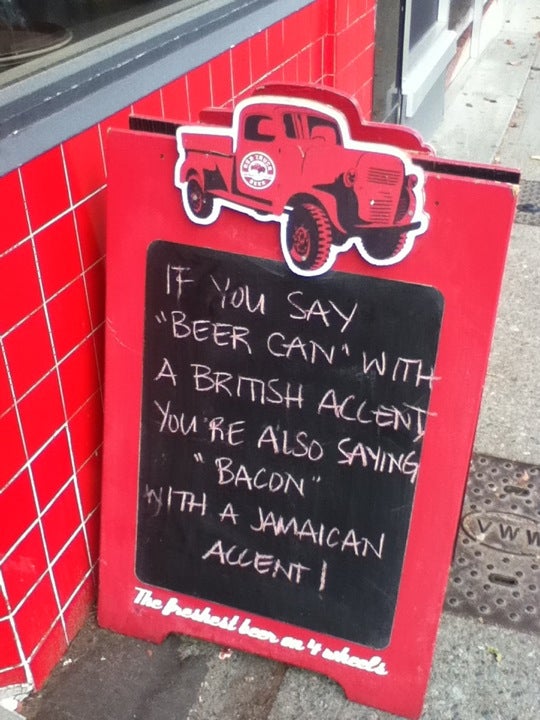 RED TRUCK
BEER
IF YOU SAY
"BEER CAN" WITH
A BRITISH ACCENT
YOU'RE ALSO SAYING
"BACON"
WITH A JAMAICAN
ACCENT!
The freshest beer on 4 wheels
VWW